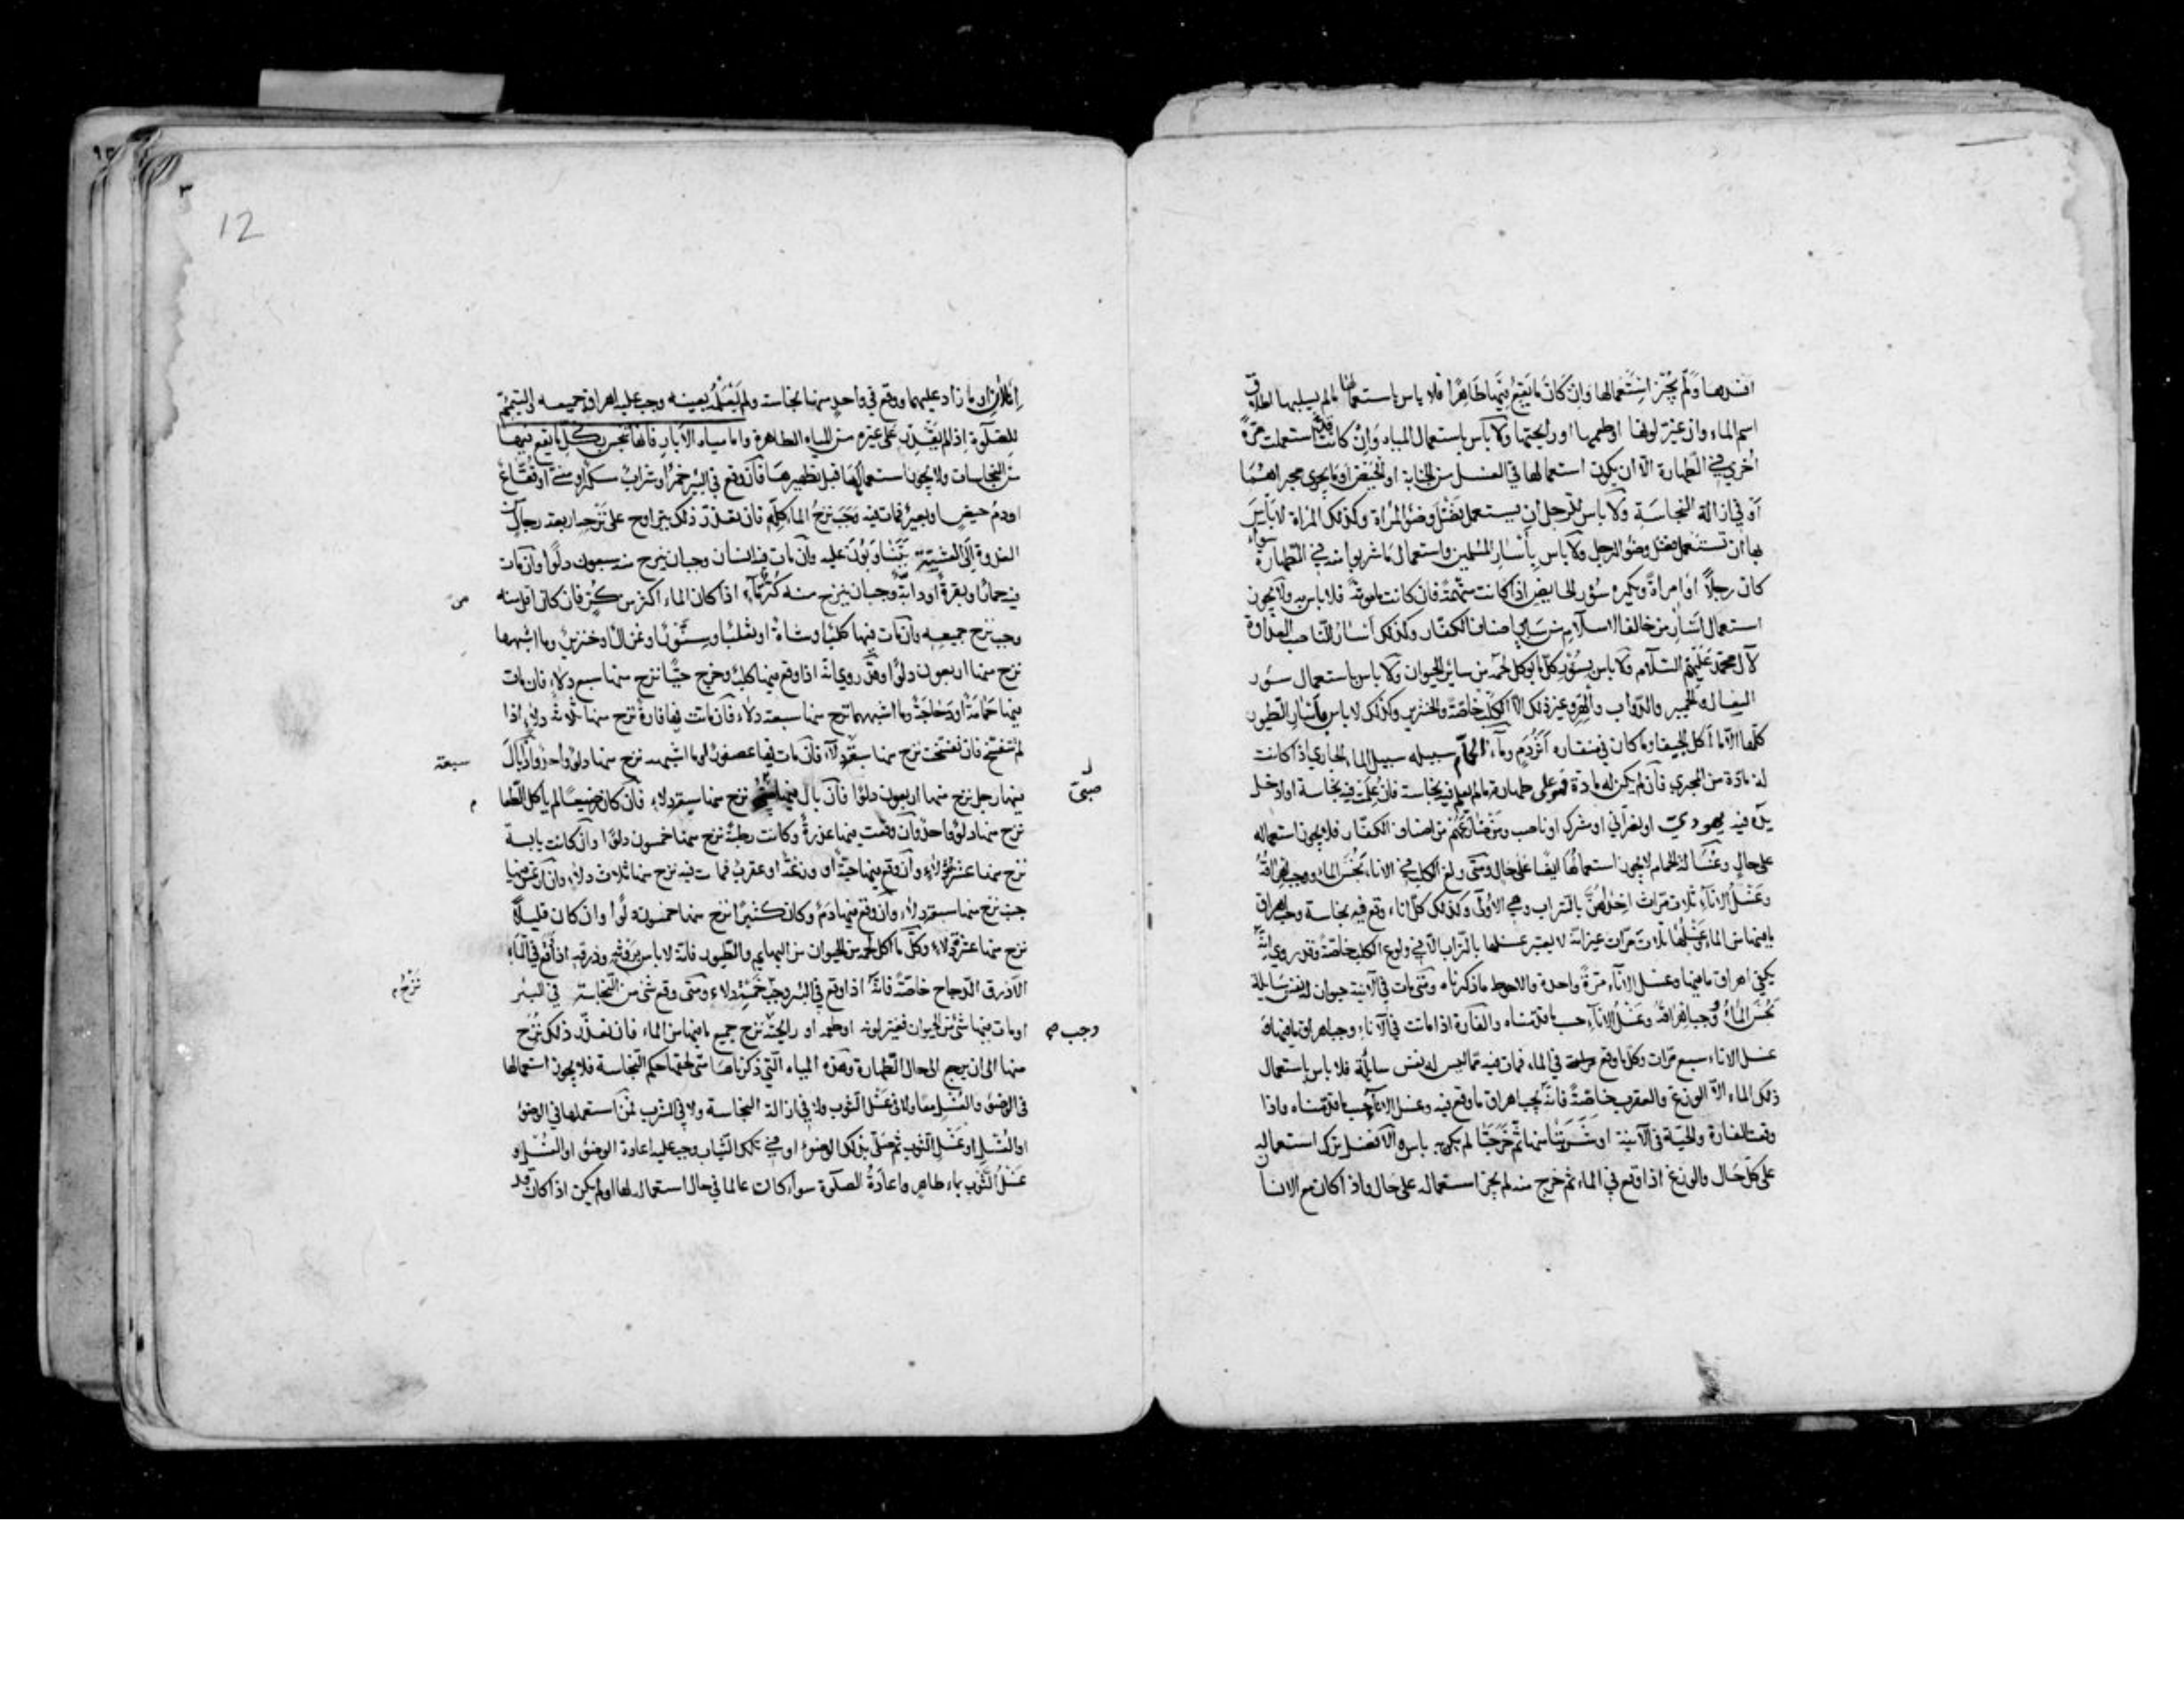 افسدها ولم يجز استعمالها وان كان ما يقع فيها طاهرا فلا باس باستعمالها ما لم يسلبها اطلاق
اسم الماء وان غيّر لونها او طعمها او رايحتها ولا بأس باستعمال المياه وان كانت قد استعملت مرّة
اخرى في الطهارة الا ان يكون استعمالها في الغسل من الجنابة او الحيض او ما يجري مجراهما
أو في ازالة النجاسة ولا باس للرجل ان يستعمل فضل وضوء المرأة وكذلك المراة لا بأس
بها ان تستعمل فضل وضوء الرجل ولا باس بأسآر المسلمين واستعمال ما شربوا منه في الطهارة سواء
كان رجلا او امرأة ويكره سؤر الحايض اذا كانت متهمة فان كانت مامونة فلا باس به ولا يجوز
استعمال اسآر من خالف الاسلام من ساير اصناف الكفار وكذلك أسار الناصب العداوة
لآل محمد عليهم السلام ولا باس بسؤر كل ما يوكل لحمه من ساير الحيوان ولا باس باستعمال سؤر
البغال والحمير والدواب والهر وغير ذلك الا الكلب خاصة والخنزير وكذلك لا باس باسار الطيور
كلها الا ما أكل الجيف او ما كان في منقاره أثر دم وماء الحمام سبيله سبيل الماء الجاري اذا كانت
له مادة من المجرى فان لم يكن له مادة فهو على طهارته ما لم يعلم فيه نجاسة فان علمت فيه نجاسة او ادخل
يده فيه يهودي او نصراني او مشرك او ناصب ومن ضارعهم من اصناف الكفار فلا يجوز استعماله
على حال وغسالة الحمام لا يجوز استعمالها ايضا على حال ومتى ولغ الكلب في الاناء نجس الماء ووجب اهراقه
وغسل الاناء ثلاث مرات احدٰهن بالتراب وهي الاولى وكذلك كل اناء وقع فيه نجاسة وجب اهراق
ما فيها من الماء وغسلها ثلاث مرات غير انه لا يعتبر غسلها بالتراب الا في ولوغ الكلب خاصة وقد روي انه
يكفي اهراق ما فيها وغسل الاناء مرة واحدة والاحوط ما ذكرناه ومتى مات في الآنية حيوان له نفس سايلة
نجس الماء ووجب اهراقه وغسل الاناء حسب ما قدمناه والفارة اذا ماتت في الآناء وجب اهراق ما فيها و
غسل الاناء سبع مرات وكل ما وقع في الماء فمات فيه مما ليس له نفس سائلة فلا باس باستعمال
ذلك الماء الا الوزغ والعقرب خاصة فانه يجب اهراق ما وقع فيه وغسل الاناء حسب ما قدمناه واذا
وقعت الفارة والحية في الآنية او شربتا منها ثم خرجتا لم يكن به باس والافضل ترك استعماله
على كل حال والوزغ اذا وقع في الماء ثم خرج منه لم يجز استعماله على حال واذا كان مع الانسان
٣
12
اناءان او ما زاد عليهما ووقع في واحد منها نجاسة ولم يعلمه بعينه وجب عليه اهراق جميعه والتيمم
للصلوة اذا لم يقدر على غيره من المياه الطاهرة واما مياه الآبار فانها تنجس بكل ما يقع فيها
من النجاسات ولا يجوز استعمالها قبل تطهيرها فان وقع في البئر خمر او شراب مسكر او مني او فقاع
او دم حيض او بعير فمات فيه وجب نزح الماء كله فان تعذر ذلك يتراوح على نزحها اربعة رجال من
الغدوة الى العشية يتناوبون عليه وان مات فيه انسان وجب ان ينزح منه سبعون دلوا وان مات
فيه حمار او بقرة او دابة وجب ان ينزح منه كر ماء اذا كان الماء اكثر من كر فان كان اقل منه
وجب نزح جميعه وان مات فيها كلب او شاة او ثعلب او سنور او غزال او خنزير وما اشبهها
نزح منها اربعون دلوا وقد روي انه اذا وقع فيها كلب وخرج حيا نزح منها سبع دلاء فان مات
فيها حمامة او دجاجة وما اشبههما نزح منها سبعة دلاء فان مات فيها فارة نزح منها ثلاثة دلاء اذا
لم تتفسخ فان تفسخت نزح منها سبعة دلاء فان مات فيها عصفور او ما اشبهه نزح منها دلو واحد واذا بال
سبعة
فيها رجل نزح منها اربعون دلوا فان بال فيها صبي نزح منها سبعة دلاء فان كان رضيعا لم ياكل الطعام
صبي
نزح منها دلو واحد وان وقعت فيها عذرة وكانت رطبة نزح منها خمسون دلوا وان كانت يابسة
نزح منها عشر دلاء وان وقع فيها حية او وزغة او عقرب فمات فيه نزح منها ثلاث دلاء وان ارتمس فيها
جنب نزح منها سبعة دلاء وان وقع فيها دم وكان كثيرا نزح منها خمسون دلوا وان كان قليلا
نزح منها عشرة دلاء وكل ما اكل لحمه من الحيوان من البهايم والطيور فانه لا باس بروثه وذرقه اذا وقع في الماء
الا ذرق الدجاج خاصة فانه اذا وقع في البئر وجب خمسة دلاء ومتى وقع شئ من النجاسة في البئر
نزح م
او مات فيها شئ من الحيوان فغير لونه او طعمه او رايحته نزح جميع ما فيها من الماء فان تعذر ذلك نزح
وجب صح
منها الى ان يرجع الى حال الطهارة وهذه المياه التي ذكرناها متى لحقها حكم النجاسة فلا يجوز استعمالها
في الوضوء والغسل معا ولا في غسل الثوب ولا في ازالة النجاسة ولا في الشرب فمن استعملها في الوضوء
او الغسل او غسل الثوب ثم صلى بذلك الوضوء او في تلك الثياب وجب عليه اعادة الوضوء او الغسل او
غسل الثوب بماء طاهر واعادة الصلوة سواء كان عالما في حال استعماله لها او لم يكن اذا كان قد